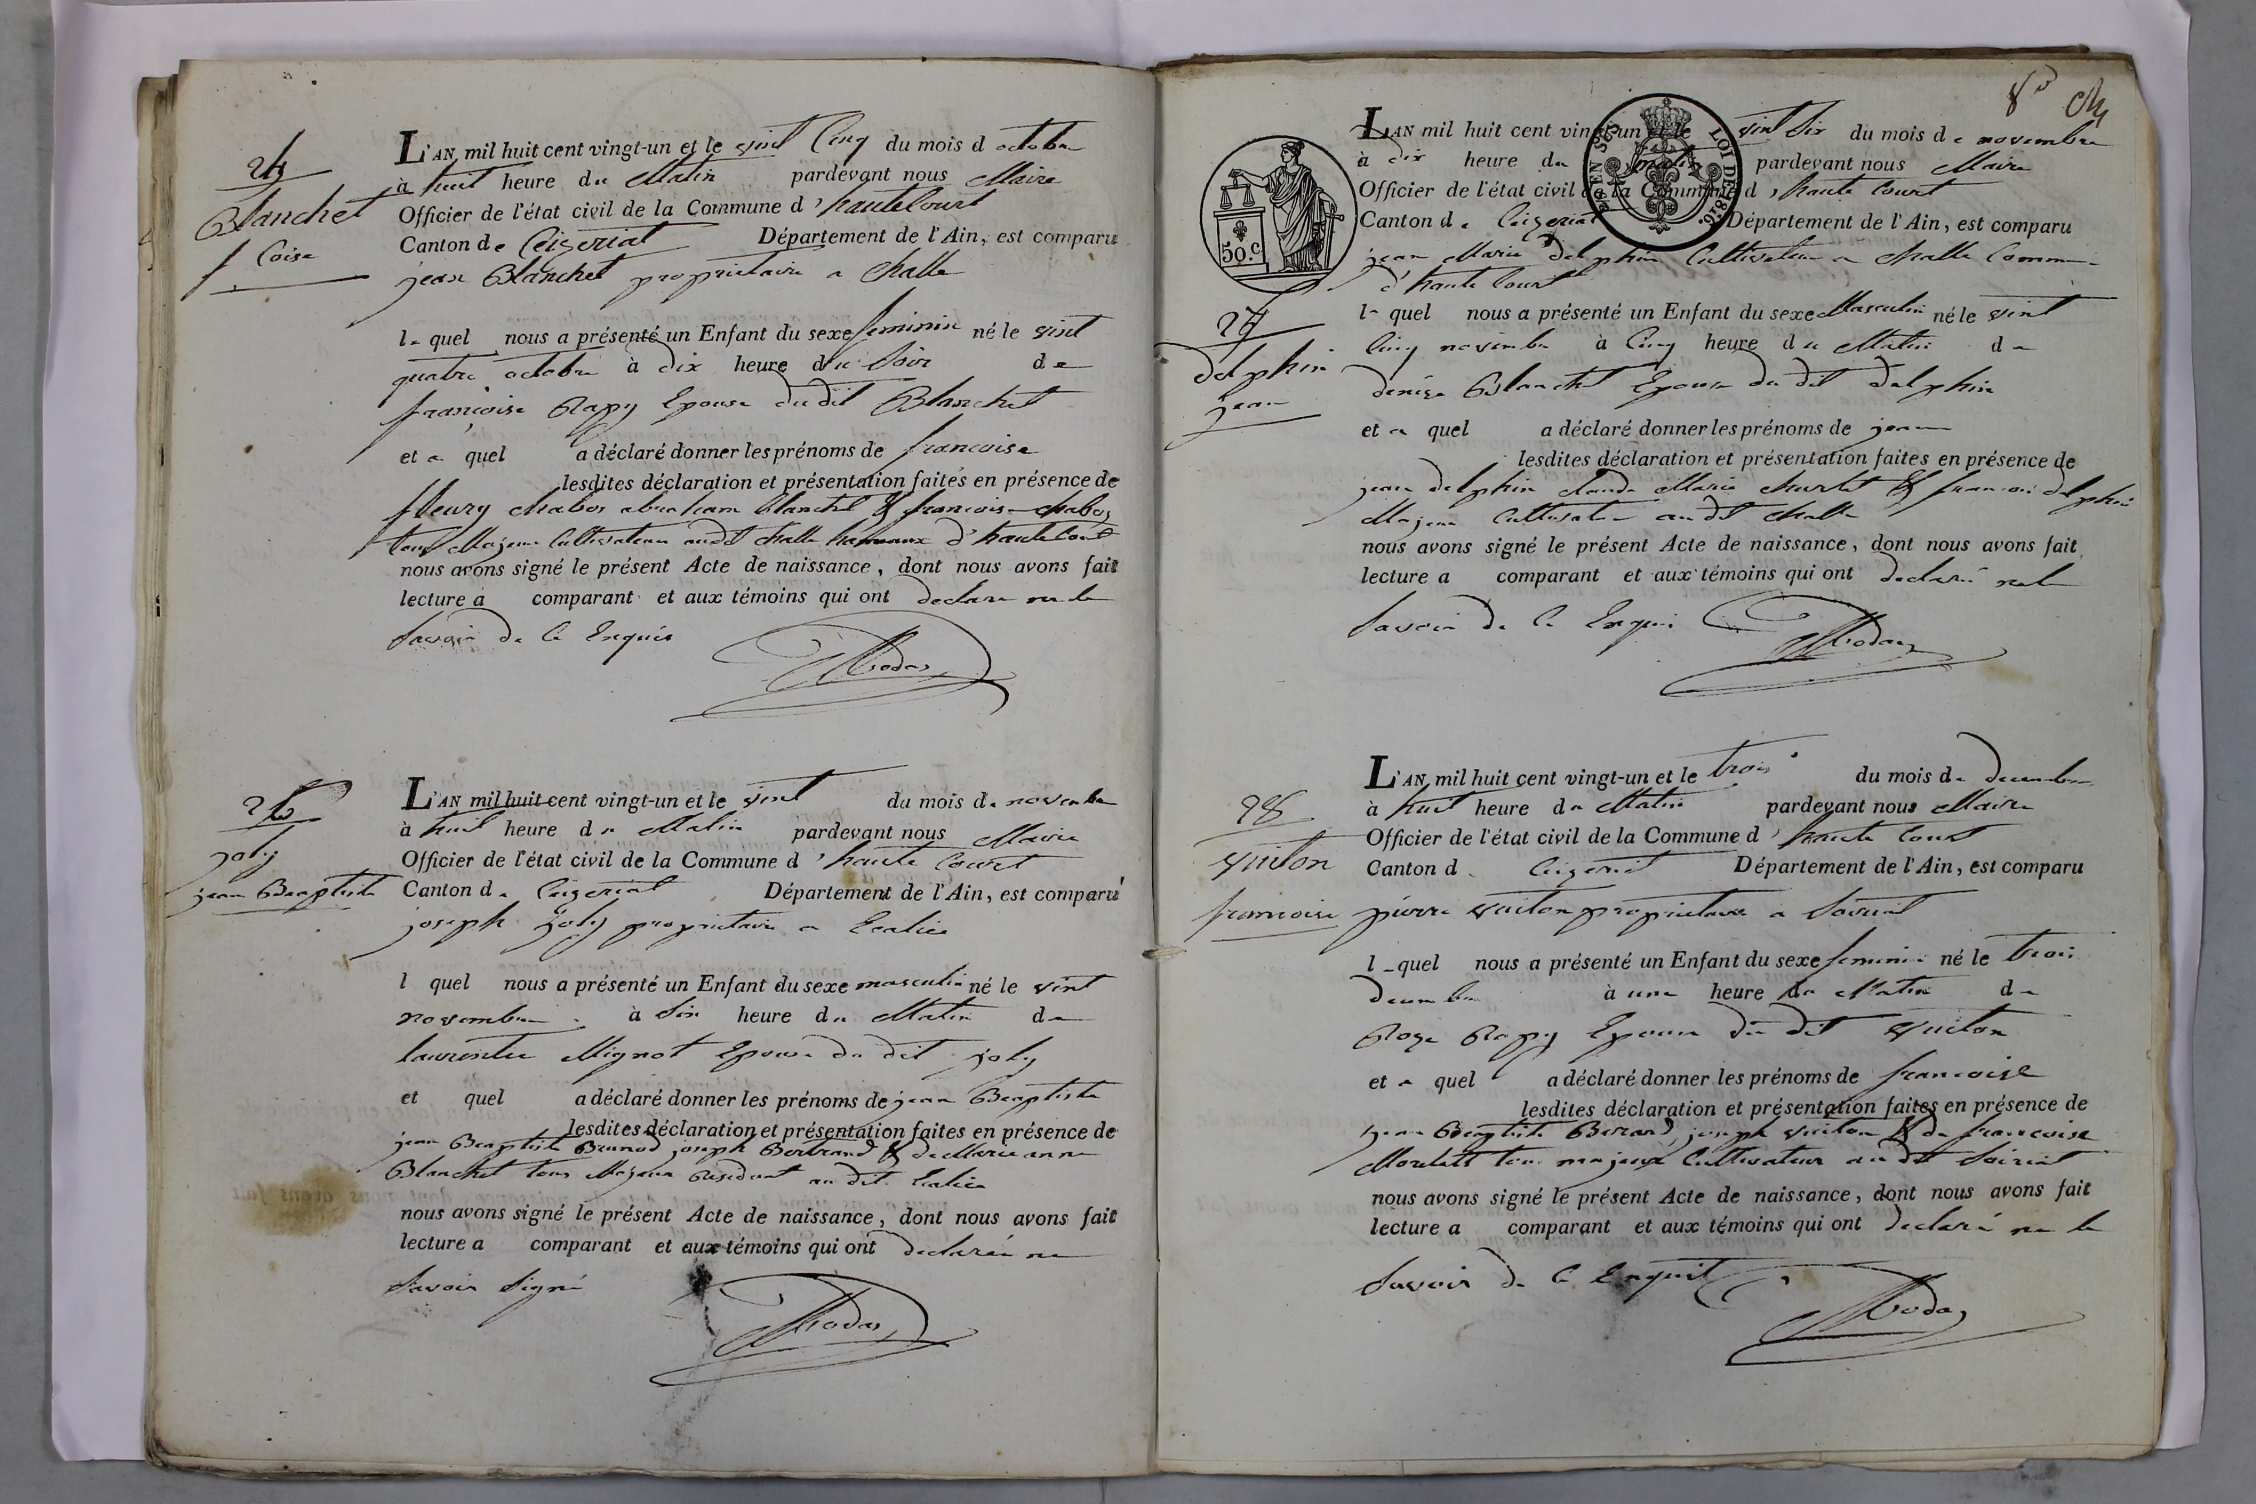 25
Blanchet
f Coise
L'AN mil huit cent vingt-un et le vint Cinq du mois d octobre
à huit heure du Matin pardevant nous Maire
Officier de l'état civil de la Commune d'hauteCourt
Canton de Ceizeriat Département de l'Ain, est comparu
jean Blanchet proprietaire a Challe
le quel nous a présenté un Enfant du sexe feminin né le vint
quatre octobre à dix heure du Soir de
françoise Rapy Epouse du dit Blanchet
et a quel a déclaré donner les prénoms de francoise
lesdites déclaration et présentation faites en présence de
fleury Chabos abraham Blanchet & francois Chabos
tous Majeur Cultivateur audit Challe hammaux d'hauteCourt
nous avons signé le présent Acte de naissance, dont nous avons fait
lecture a comparant et aux témoins qui ont declare ne le
Savoir de Ce Enquis
26
joly
jean Beaptiste
L'AN mil huit cent vingt-un et le vint du mois de novembre
à huit heure du Matin pardevant nous Maire
Officier de l'état civil de la Commune d'haute Court
Canton de Ceizeriat Département de l'Ain, est comparu
joseph joly proprietaire a
l quel nous a présenté un Enfant du sexe masculin né le vint
novembre à Six heure du Matin de
laurentie Mignot Epouse du dit joly
et quel a déclaré donner les prénoms de jean Beaptiste
lesdites déclaration et présentation faites en présence de
jean Beaptiste Brunod joseph Bertrand & de Marie anne
Blanchet tous Majeur residant au dit
nous avons signé le présent Acte de naissance, dont nous avons fait
lecture a comparant et aux témoins qui ont declarée ne
Savoir Signé
8
50.C
LOI DE 1816.
27
delphin
jean
L'AN mil huit cent vingt-un et le vint Six du mois de novembre
à dix heure du matin pardevant nous Maire
Officier de l'état civil de la Commune d'haute Court
Canton de Ceizeriat Département de l'Ain, est comparu
jean Marie delphin Cultivateur a Challe Commune
d'haute Court
le quel nous a présenté un Enfant du sexe Masculin né le vint
Cinq novembre à Cinq heure du Matin de
denise Blanchet Epouse du dit delphin
et a quel a déclaré donner les prénoms de jean
lesdites déclaration et présentation faites en présence de
jean delphin Claude Marie & francois delphin
Majeur Cultivateur audit Challe
nous avons signé le présent Acte de naissance, dont nous avons fait
lecture a comparant et aux témoins qui ont declaré ne le
Savoir de Ce Enquis
28
vuiton
francoise
L'AN mil huit cent vingt-un et le trois du mois de decembre
à huit heure du Matin pardevant nous Maire
Officier de l'état civil de la Commune d'haute Court
Canton d Ceizeriat Département de l'Ain, est comparu
pierre vuiton proprietaire a
le quel nous a présenté un Enfant du sexe feminin né le trois
decembre à une heure du Matin de
Roze Rapy Epouse du dit vuiton
et a quel a déclaré donner les prénoms de francoise
lesdites déclaration et présentation faites en présence de
jean Beaptiste Berard, joseph vuiton & de francoise
tous majeur Cultivateur au dit
nous avons signé le présent Acte de naissance, dont nous avons fait
lecture a comparant et aux témoins qui ont declaré ne le
Savoir de Ce Enquit